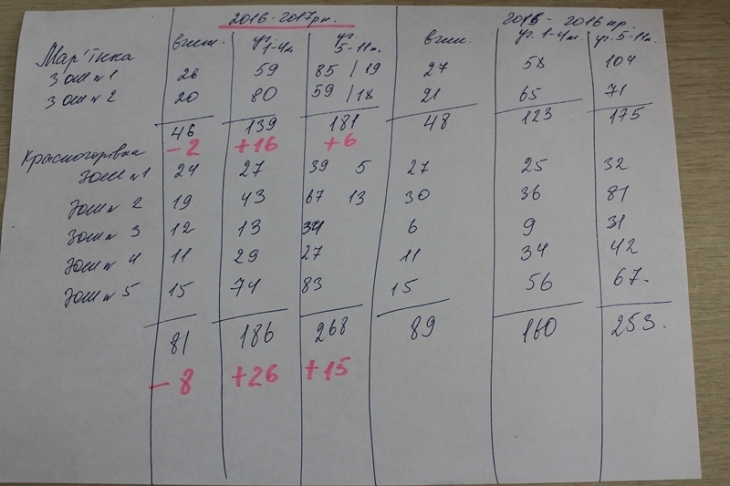 2016-2017рн. 2015-2016 нр.
Мар'їнка вчит. уч. 1-4кл уч. 5-11кл. вчи. уч. 1-4кл уч. 5-11кл.
ЗОШ №1 26 59 85 / 19 27 58 104
ЗОШ №2 20 80 59 / 18 21 65 71
46 139 181 48 123 175
-2 +16 +6
Красногорівка
ЗОШ №1 24 27 39 5 27 25 32
ЗОШ № 2 19 43 67 13 30 36 81
ЗОШ № 3 12 13 34 6 9 31
ЗОШ № 4 11 29 27 11 34 42
ЗОШ № 5 15 74 83 15 56 67.
81 186 268 89 160 253.
-8 +26 +15